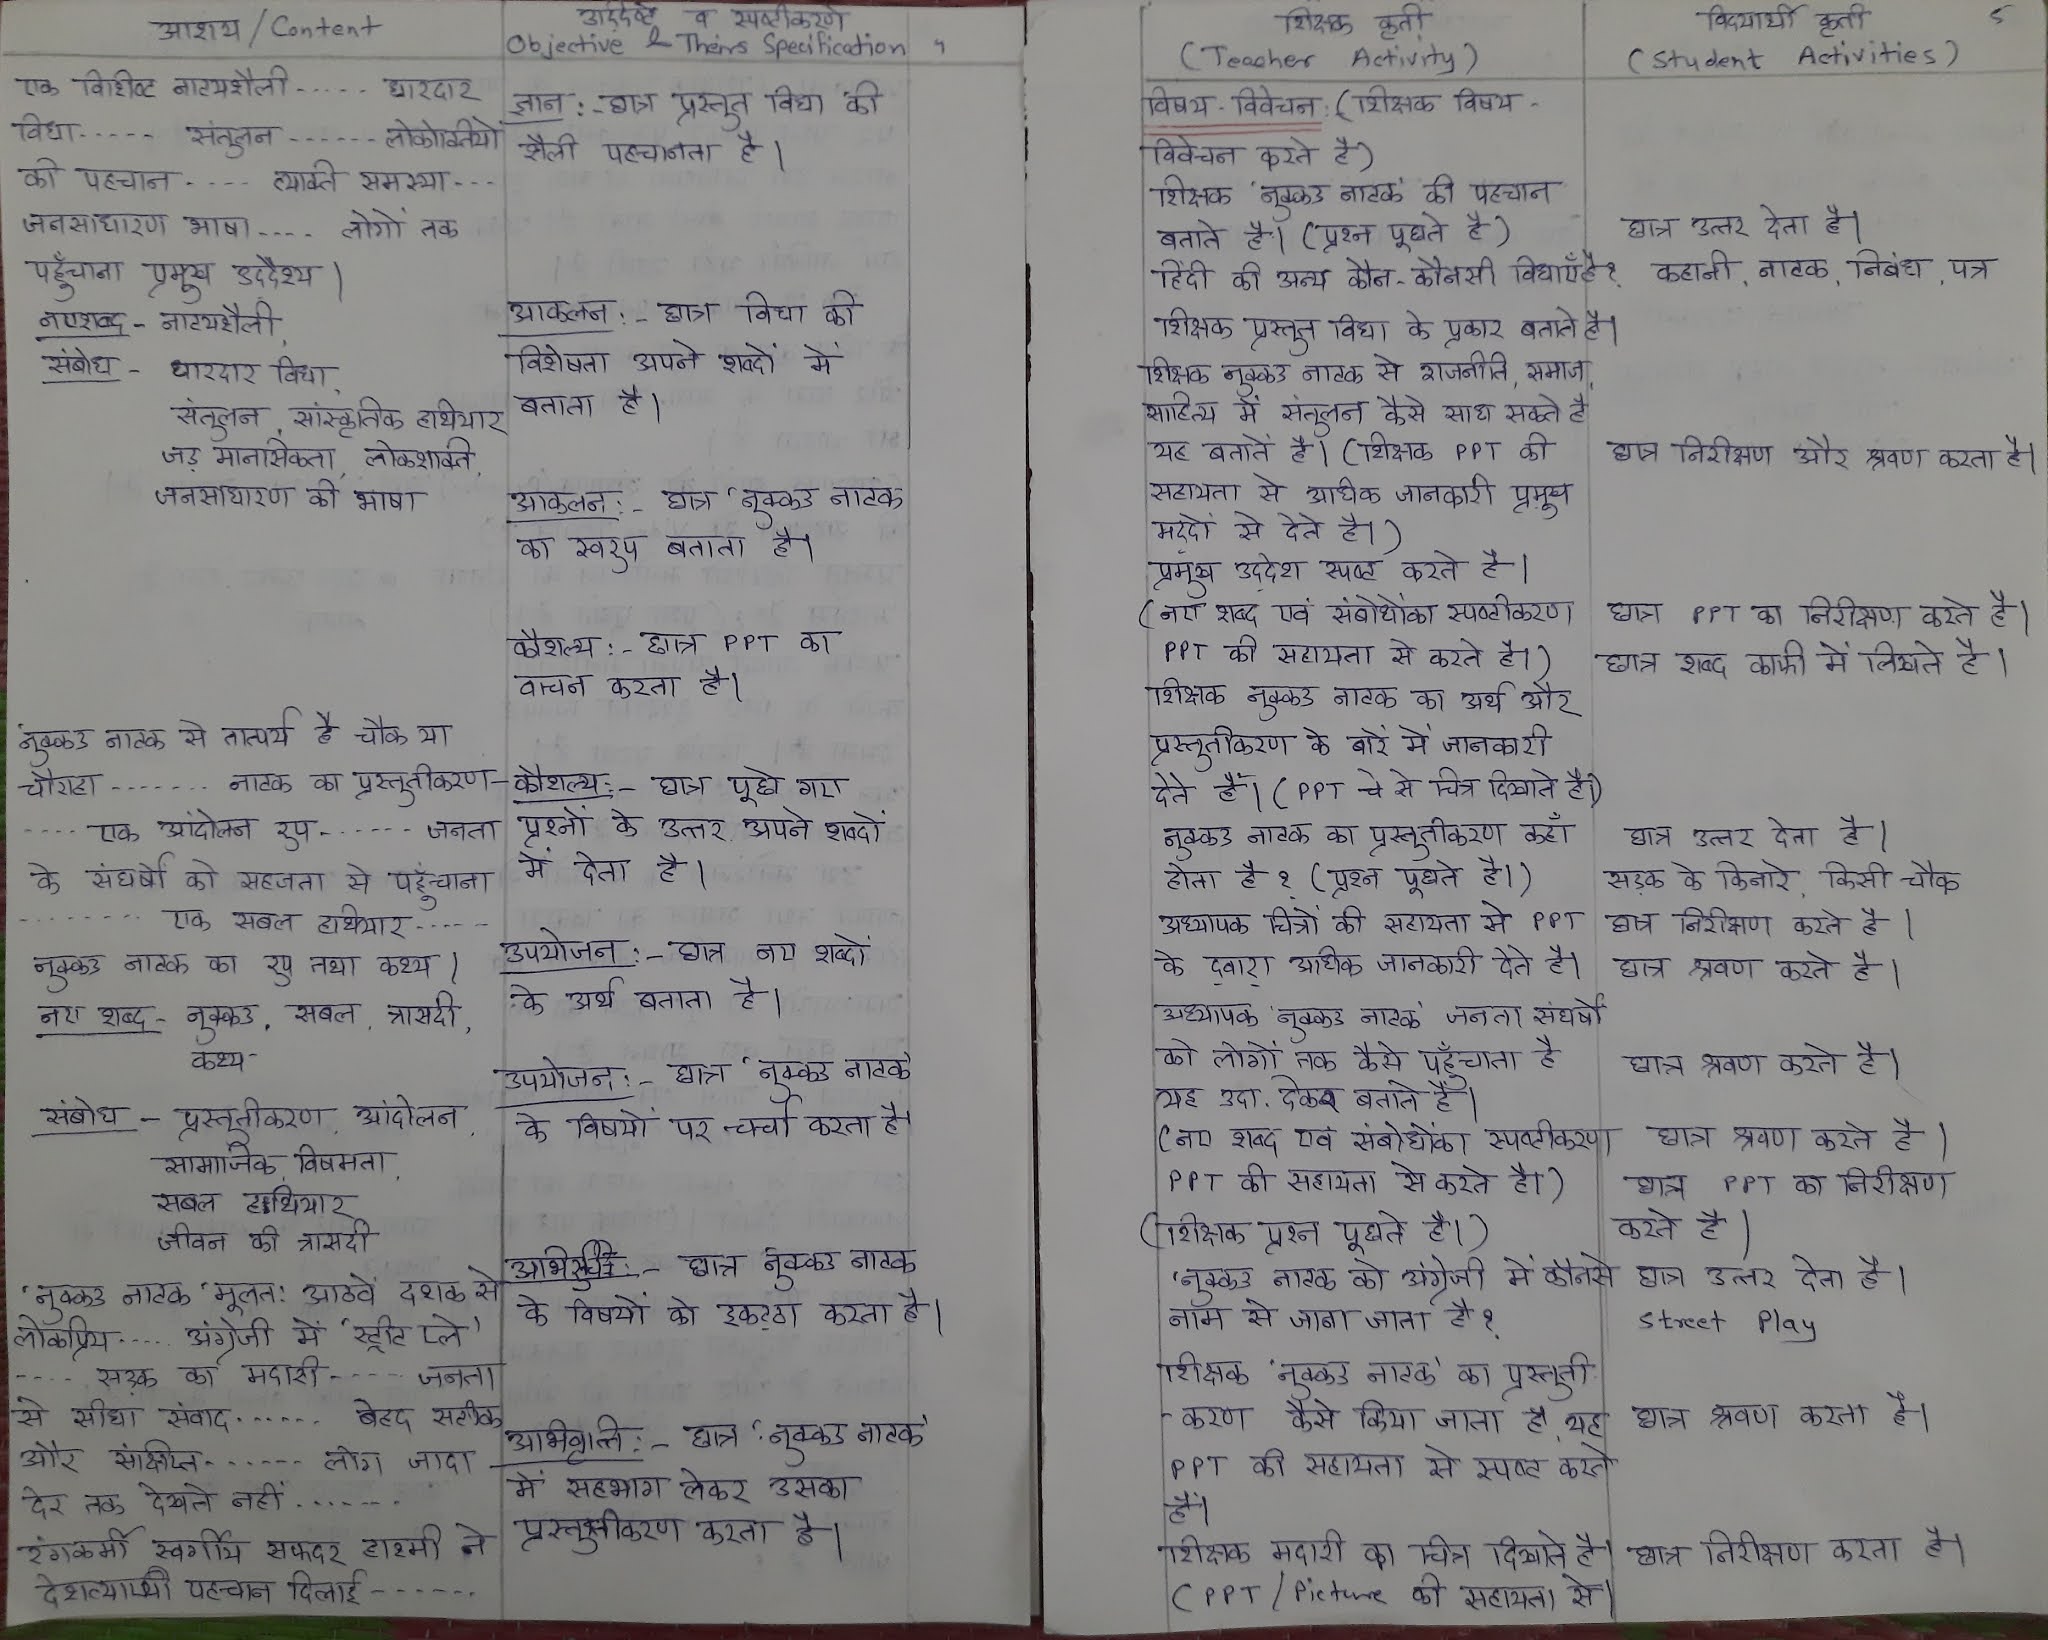 आशय / Content
एक विशिष्ट नाट्यशैली ..... धारदार
विधा ..... संतुलन ...... लोकोक्तियों
की पहचान .... व्यक्ति समस्या ...
जनसाधारण भाषा .... लोगों तक
पहुँचाना प्रमुख उद्देश्य |
नएशब्द - नाट्यशैली,
संबोध - धारदार विधा,
संतुलन, सांस्कृतिक हथियार
जड़ मानसिकता, लोकशक्ति,
जनसाधारण की भाषा
नुक्कड नाटक से तात्पर्य है चौक या
चौराहा ....... नाटक का प्रस्तुतीकरण -
.... एक आंदोलन रुप ...... जनता
के संघर्षो को सहजता से पहुँचाना
........ एक सबल हथियार .....
नुक्कड नाटक का रुप तथा कथ्य |
नए शब्द - नुक्कड, सबल, त्रासदी,
कथ्य
संबोध - प्रस्तुतीकरण, आंदोलन,
सामाजिक विषमता,
सबल हथियार
जीवन की त्रासदी
'नुक्कड नाटक' मूलतः आठवें दशक से
लोकप्रिय .... अंग्रेजी में 'स्ट्रीट प्ले'
.... सड़क का मदारी ..... जनता
से सीधा संवाद ...... बेहद सटीक
और संक्षिप्त ...... लोग जादा
देर तक देखते नहीं .......
रंगकर्मी स्वर्गीय सफदर हाश्मी ने
देशव्यापी पहचान दिलाई .......
उद्दिष्टे व स्पष्टीकरण
Objective & Theirs Specification 4
ज्ञान :- छात्र प्रस्तुत विधा की
शैली पहचानता है |
आकलन :- छात्र विधा की
विशेषता अपने शब्दों में
बताता है |
आकलन :- छात्र 'नुक्कड नाटक
का स्वरुप बताता है|
कौशल्य :- छात्र PPT का
वाचन करता है|
कौशल्य :- छात्र पूछे गए
प्रश्नों के उत्तर अपने शब्दों
में देता है |
उपयोजन :- छात्र नए शब्दों
के अर्थ बताता है |
उपयोजन :- छात्र 'नुक्कड नाटक'
के विषयों पर चर्चा करता है|
अभिरुचि :- छात्र नुक्कड नाटक
के विषयों को इकट्ठा करता है |
अभिवृत्ति :- छात्र 'नुक्कड नाटक'
में सहभाग लेकर उसका
प्रस्तुतीकरण करता है |
शिक्षक कृती
(Teacher Activity)
विषय - विवेचन : (शिक्षक विषय -
विवेचन करते है)
शिक्षक 'नुक्कड नाटक' की पहचान
बताते है| (प्रश्न पूछते है)
हिंदी की अन्य कौन-कौनसी विधाएँ है?
शिक्षक प्रस्तुत विधा के प्रकार बताते है|
शिक्षक नुक्कड नाटक से राजनीति, समाज,
साहित्य में संतुलन कैसे साध सकते है
यह बताते है| (शिक्षक PPT की
सहायता से अधिक जानकारी प्रमुख
मद्दों से देते है|)
प्रमुख उद्देश स्पष्ट करते है |
(नए शब्द एवं संबोधोंका स्पष्टीकरण
PPT की सहायता से करते है|)
शिक्षक नुक्कड नाटक का अर्थ और
प्रस्तुतीकरण के बारें में जानकारी
देते हैं| (PPT चे से चित्र दिखाते है|)
नुक्कड नाटक का प्रस्तुतीकरण कहाँ
होता है? (प्रश्न पूछते है|)
अध्यापक चित्रों की सहायता से PPT
के द्वारा अधिक जानकारी देते है|
अध्यापक 'नुक्कड नाटक' जनता संघर्षों
को लोगों तक कैसे पहुँचाता है
यह उदा. देकर बताते हैं|
(नए शब्द एवं संबोधोंका स्पष्टीकरण
PPT की सहायता से करते है|)
(शिक्षक प्रश्न पूछते है|)
'नुक्कड नाटक को अंग्रेजी में कौनसे
नाम से जाना जाता है?
शिक्षक 'नुक्कड नाटक' का प्रस्तुती
- करण कैसे किया जाता है, यह
PPT की सहायता से स्पष्ट करते
हैं|
शिक्षक मदारी का चित्र दिखाते है|
(PPT / Picture की सहायता से|
विद्यार्थी कृती 5
(Student Activities)
छात्र उत्तर देता है|
कहानी, नाटक, निबंध, पत्र
छात्र निरीक्षण और श्रवण करता है|
छात्र PPT का निरीक्षण करते है|
छात्र शब्द कापी में लिखते है |
छात्र उत्तर देता है |
सड़क के किनारे, किसी चौक
छात्र निरीक्षण करते है |
छात्र श्रवण करते है |
छात्र श्रवण करते है|
छात्र श्रवण करते है |
छात्र PPT का निरीक्षण
करते है |
छात्र उत्तर देता है |
Street Play
छात्र श्रवण करता है|
छात्र निरीक्षण करता है|